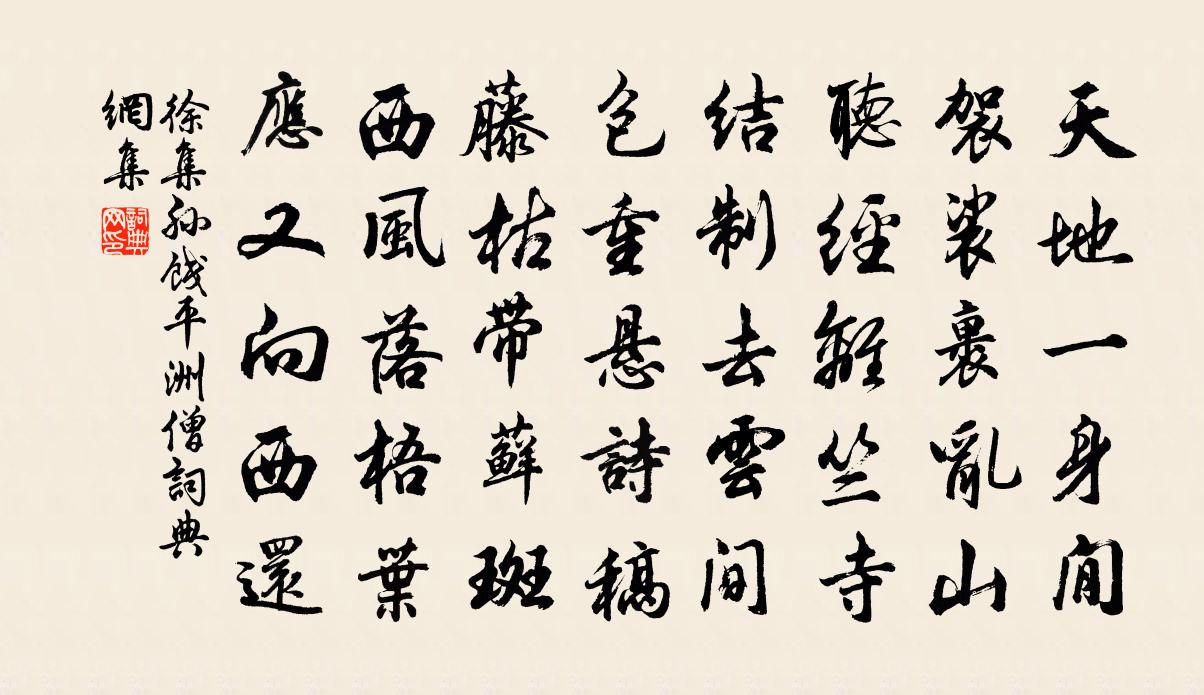 天地一身閒
袈裟裹亂山
聽經離竺寺
結制去雲間
包重懸詩稿
藤枯帶蘚斑
西風落梧葉
應又向西還
徐集孙饯平洲僧詞典
網集
詞典网印